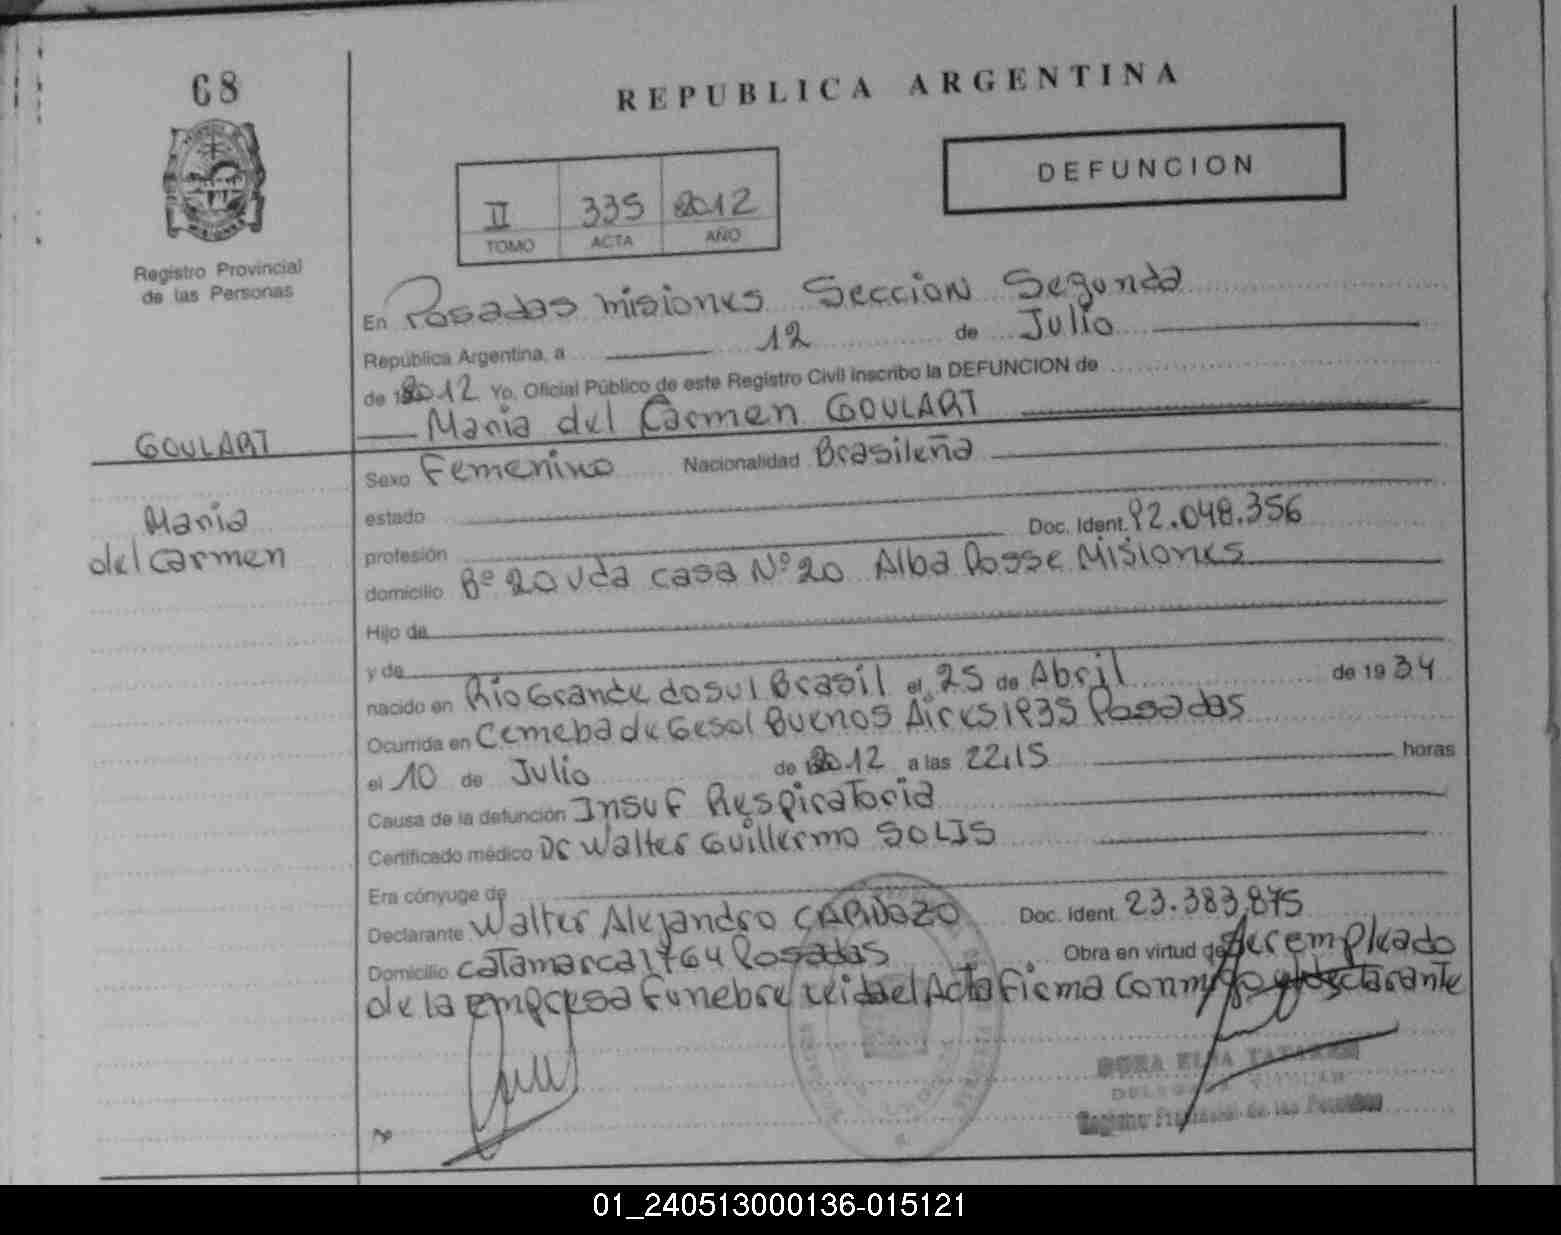 68
REPUBLICA ARGENTINA
DEFUNCION
II 335 2012
TOMO ACTA AÑO
Registro Provincial
de las Personas
En Posadas Misiones Seccion Segunda
República Argentina, a 12 de Julio
de 2012 Yo, Oficial Público de este Registro Civil inscribo la DEFUNCION de
Maria del Carmen GOULART
GOULART
Maria
del Carmen
Sexo Femenino Nacionalidad Brasileña
estado
profesión Doc. Ident. 92.048.356
domicilio Bº 20 vda casa Nº 20 Alba Posse Misiones
Hijo de
y de
nacido en Rio Grande do sul Brasil el 25 de Abril de 1934
Ocurrida en Cemeba de Gesol Buenos Aires 1935 Posadas
el 10 de Julio de 2012 a las 22,15 horas
Causa de la defunción Insuf Respiratoria
Certificado médico Dr Walter Guillermo SOLIS
Era cónyuge de
Declarante Walter Alejandro CARDOZO Doc. Ident. 23.383.875
Domicilio catamarca 1764 Posadas Obra en virtud de ser empleado
de la empresa Funebre leida el Acta Firma Conmigo el declarante
Registro Provincial de las Personas
01_240513000136-015121